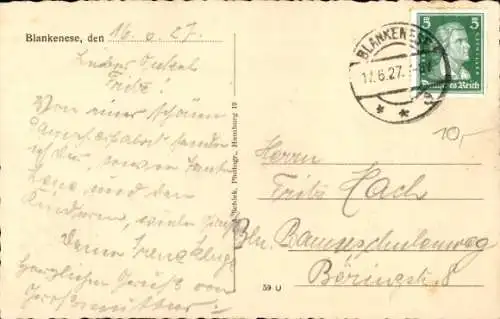 Blankenese, den 16.6.27.
Lieber Onkel
Fritz!
Von einer schönen
Dampferfahrt senden
ich dir, sowie Tante
Lene, und den
Kindern, viele Grüße
Deine
herzlichen Gruß von
Großmutter.
BLANKENESE
17.6.27.
5 5
Deutsches Reich
10,-
Herrn
Fritz Hach
Bln. Baumschulenweg
Böringstr 8
Photogr., Hamburg 19
59 U